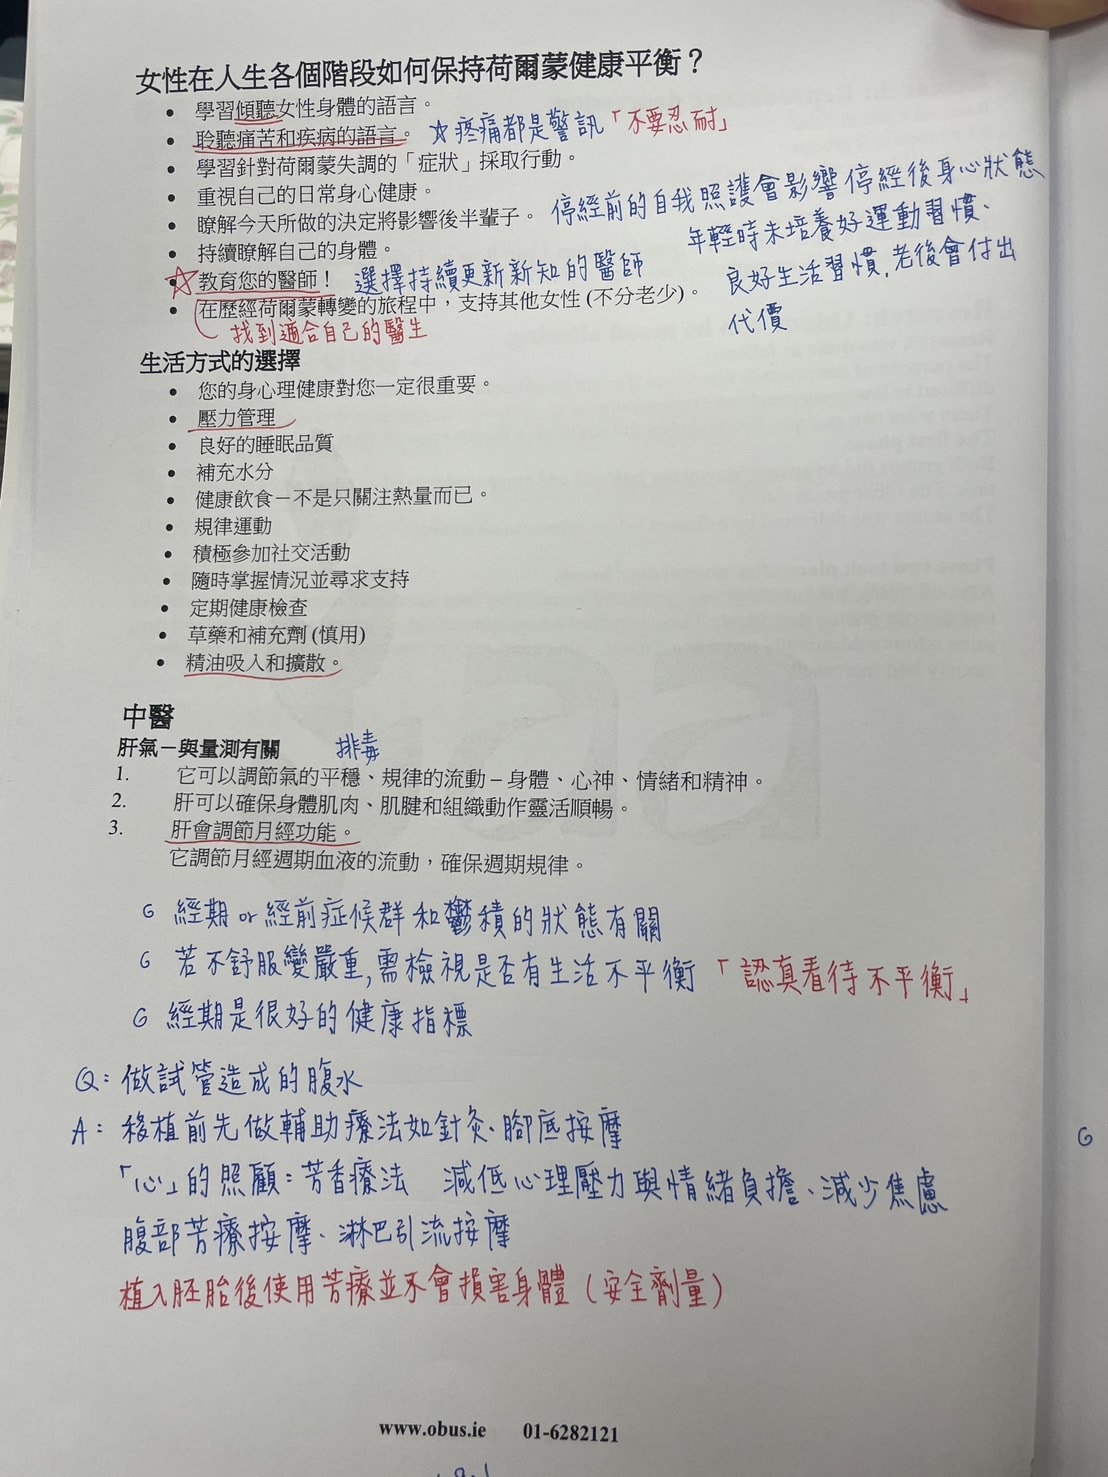 女性在人生各個階段如何保持荷爾蒙健康平衡？
• 學習傾聽女性身體的語言。
• 聆聽痛苦和疾病的語言。 ☆疼痛都是警訊「不要忍耐」
• 學習針對荷爾蒙失調的「症狀」採取行動。
• 重視自己的日常身心健康。
• 瞭解今天所做的決定將影響後半輩子。 停經前的自我照護會影響停經後身心狀態
• 持續瞭解自己的身體。 年輕時未培養好運動習慣、
☆教育您的醫師！ 選擇持續更新新知的醫師 良好生活習慣,老後會付出
• 在歷經荷爾蒙轉變的旅程中，支持其他女性 (不分老少)。 代價
找到適合自己的醫生
生活方式的選擇
• 您的身心理健康對您一定很重要。
• 壓力管理
• 良好的睡眠品質
• 補充水分
• 健康飲食－不是只關注熱量而已。
• 規律運動
• 積極參加社交活動
• 隨時掌握情況並尋求支持
• 定期健康檢查
• 草藥和補充劑 (慎用)
• 精油吸入和擴散。
中醫
肝氣－與量測有關 排毒
1. 它可以調節氣的平穩、規律的流動－身體、心神、情緒和精神。
2. 肝可以確保身體肌肉、肌腱和組織動作靈活順暢。
3. 肝會調節月經功能。
它調節月經週期血液的流動，確保週期規律。
G 經期or經前症候群和鬱積的狀態有關
G 若不舒服變嚴重,需檢視是否有生活不平衡 「認真看待不平衡」
G 經期是很好的健康指標
Q: 做試管造成的腹水
A: 移植前先做輔助療法如針灸、腳底按摩
「心」的照顧:芳香療法 減低心理壓力與情緒負擔、減少焦慮
腹部芳療按摩、淋巴引流按摩
植入胚胎後使用芳療並不會損害身體（安全劑量）
G
www.obus.ie 01-6282121